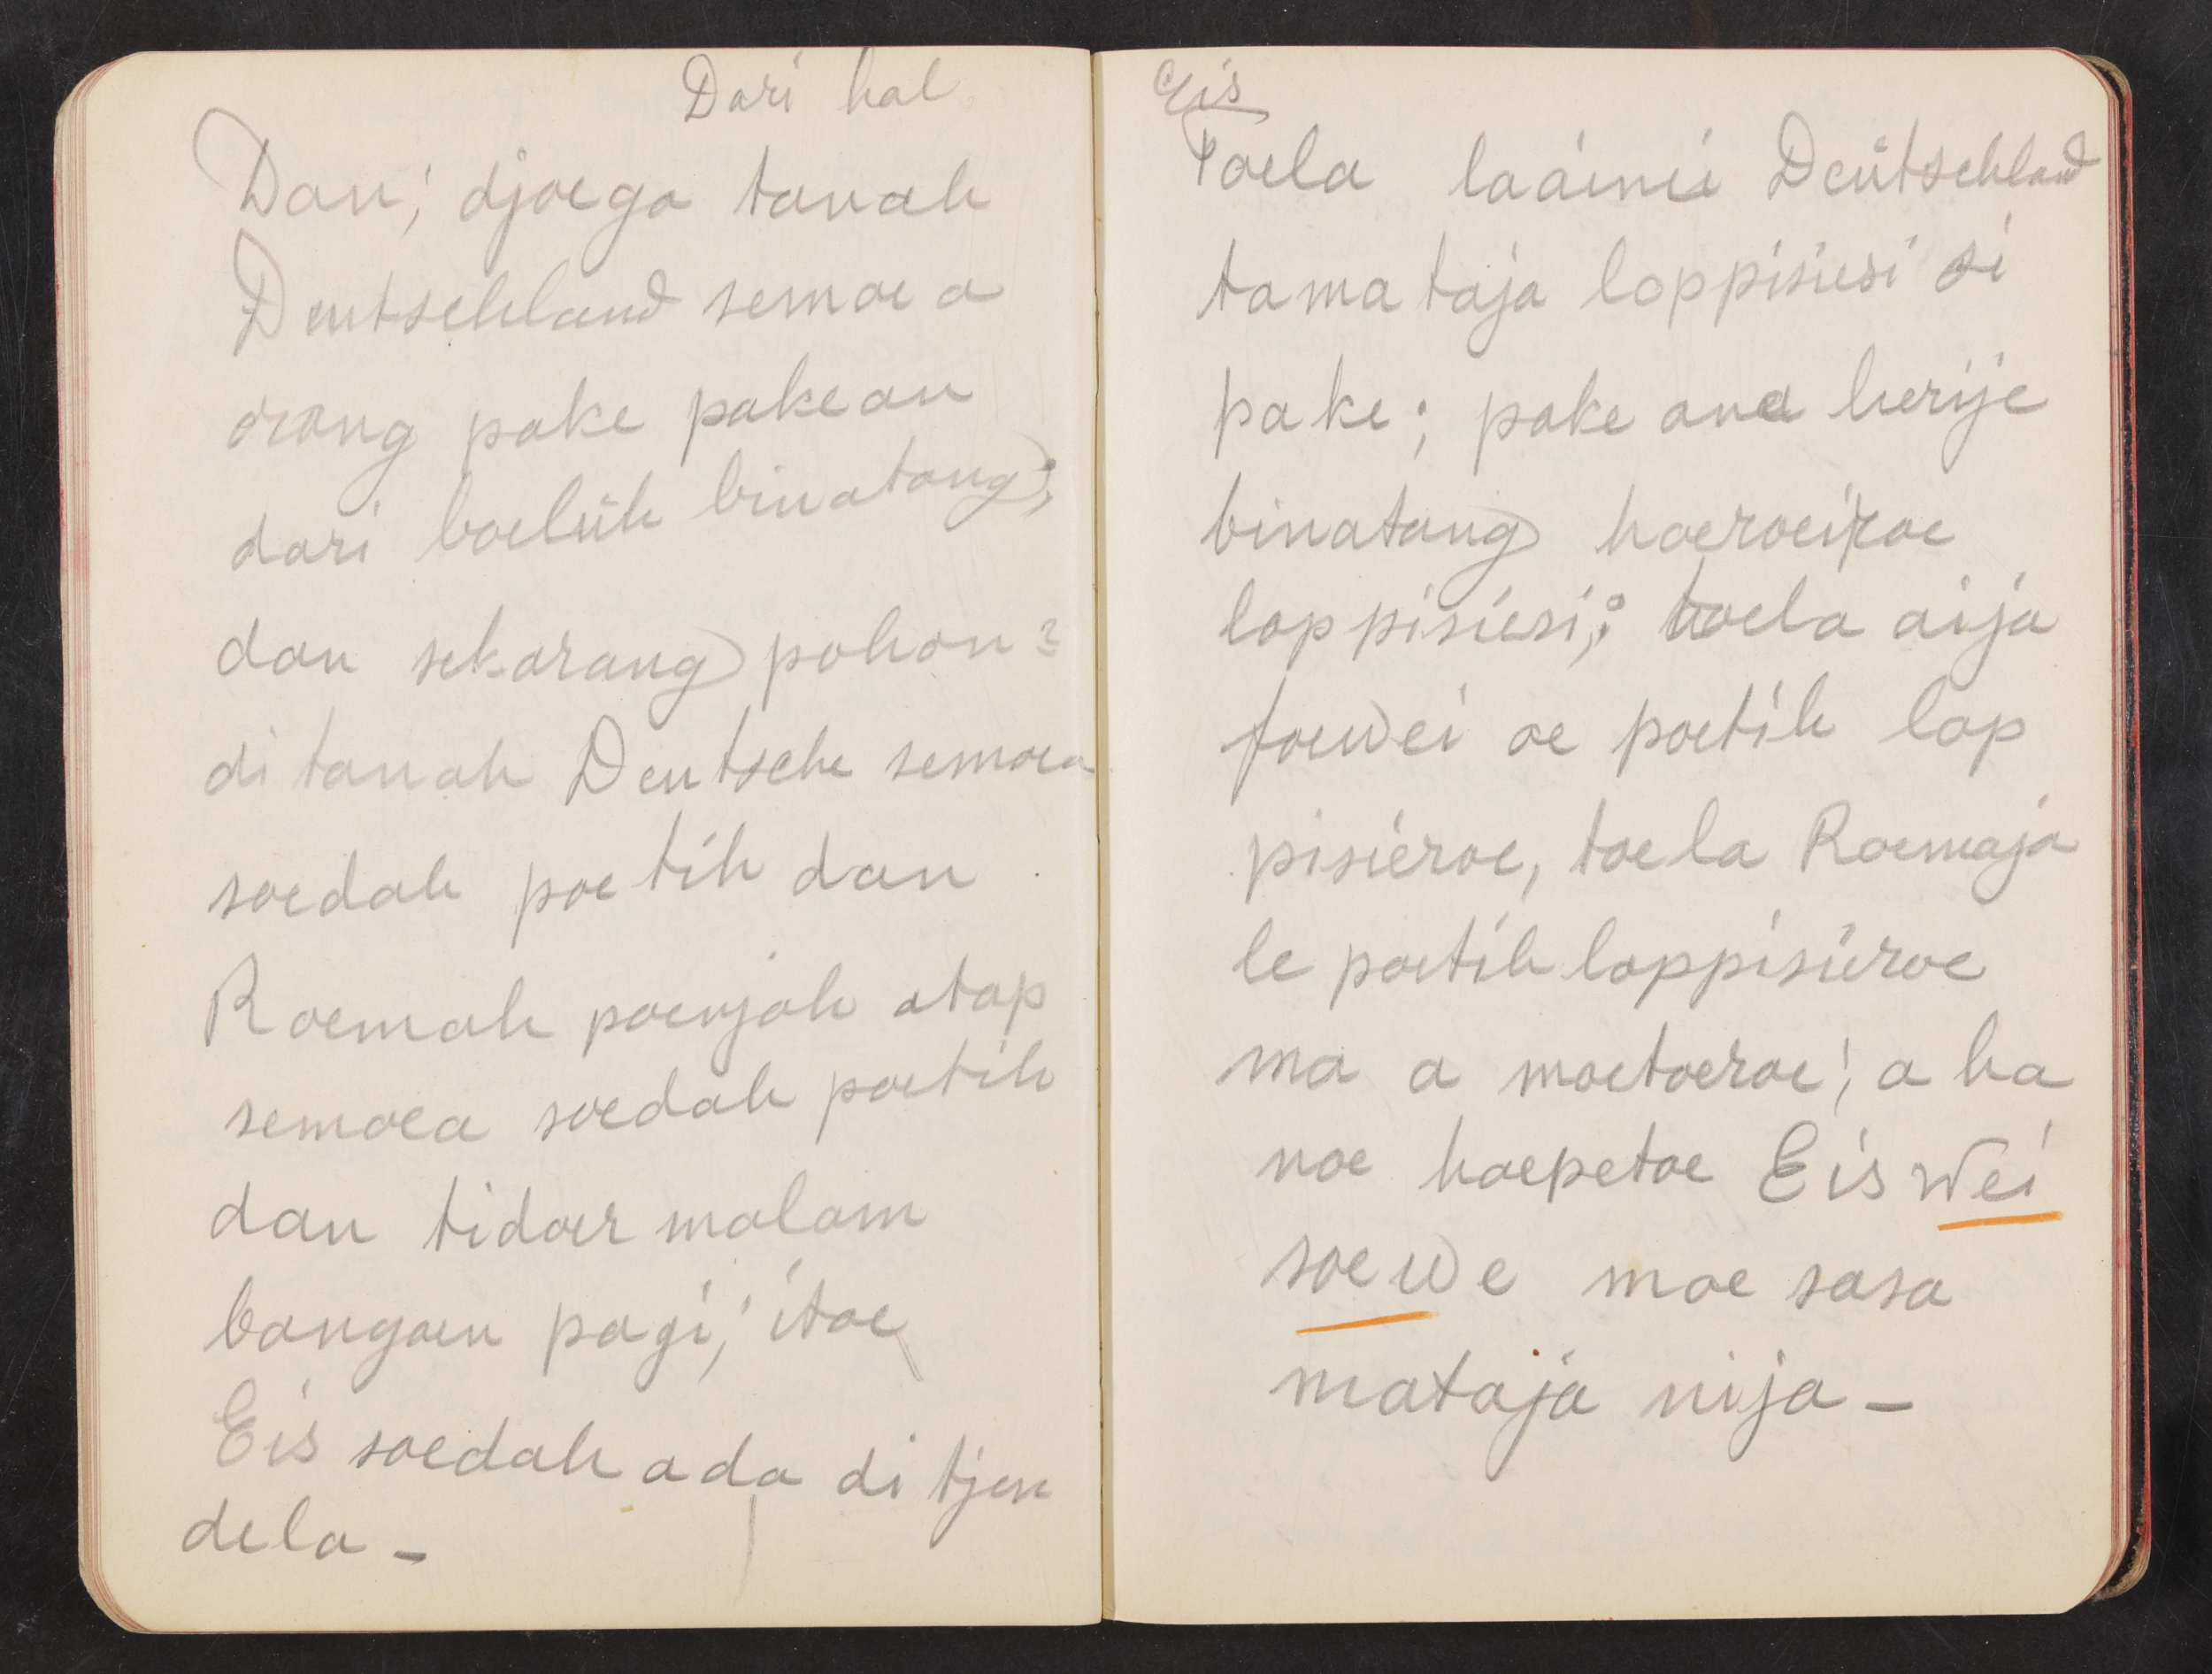 Dari hal
Dan; djoega tanah
Deutschland semoea
orang pake pakean
dari boelüh binatang;
dan sekarang pohon2
di tanah Deutsche semoea
soedah poetih dan
Roemah poenjah atap
semoea soedah poetih
dan tidoer malam
bangoen pagi; itoe
Eis soedah ada di tjen
dela –
Eis
Toela laáinií Deütschland
tamataja loppisiesi si
pake; pake ana herije
binatang hoeroeiroe
loppisiesi; toela aija
foewei oe poetih lop
pisiéroe, toela Roemaja
le poetih loppisiéroe
ma a moetoeroe; a ha
noe hoepetoe Eis wei
soewe moe sasa
mataja nija –